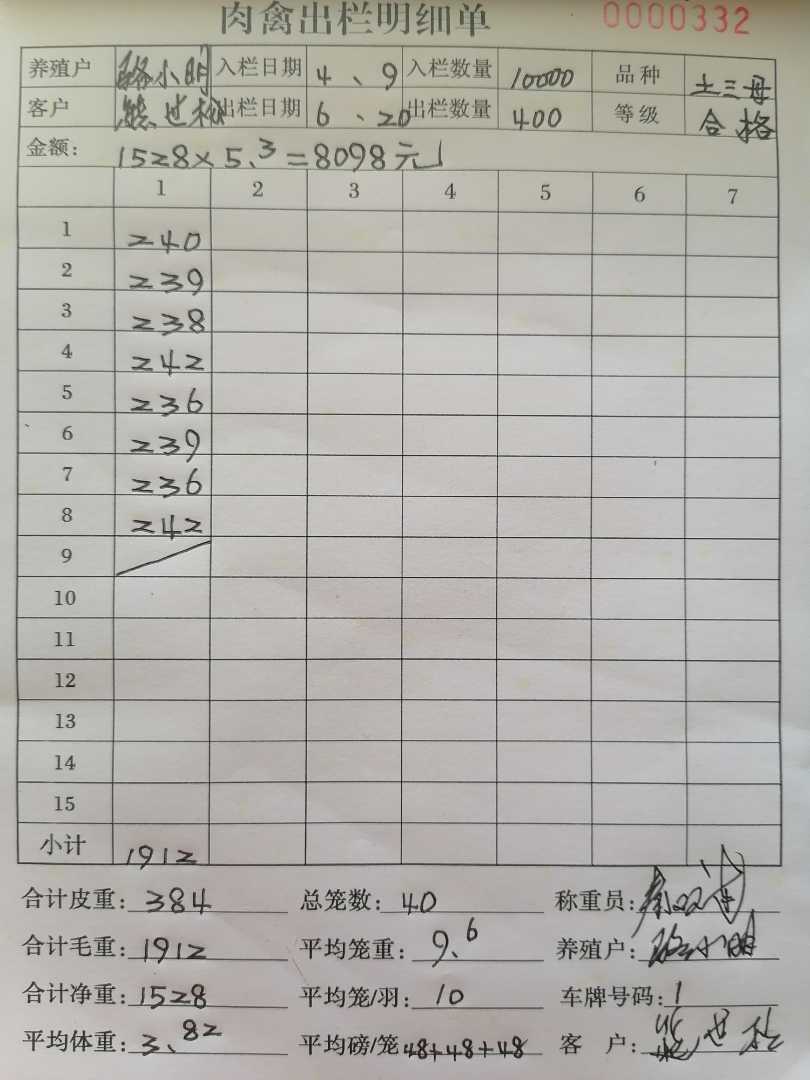 肉禽出栏明细单 0000332
养殖户 骆小明 入栏日期 4、9 入栏数量 10000 品种 土三母
客户 熊世松 出栏日期 6、20 出栏数量 400 等级 合格
金额: 1528×5.3=8098元
1 2 3 4 5 6 7
1 240
2 239
3 238
4 242
5 236
6 239
7 236
8 242
9
10
11
12
13
14
15
小计 1912
合计皮重: 384 总笼数: 40 称重员:
合计毛重: 1912 平均笼重: 9.6 养殖户: 骆小明
合计净重: 1528 平均笼/羽: 10 车牌号码: 1
平均体重: 3、82 平均磅/笼 48+48+48 客 户: 熊世松